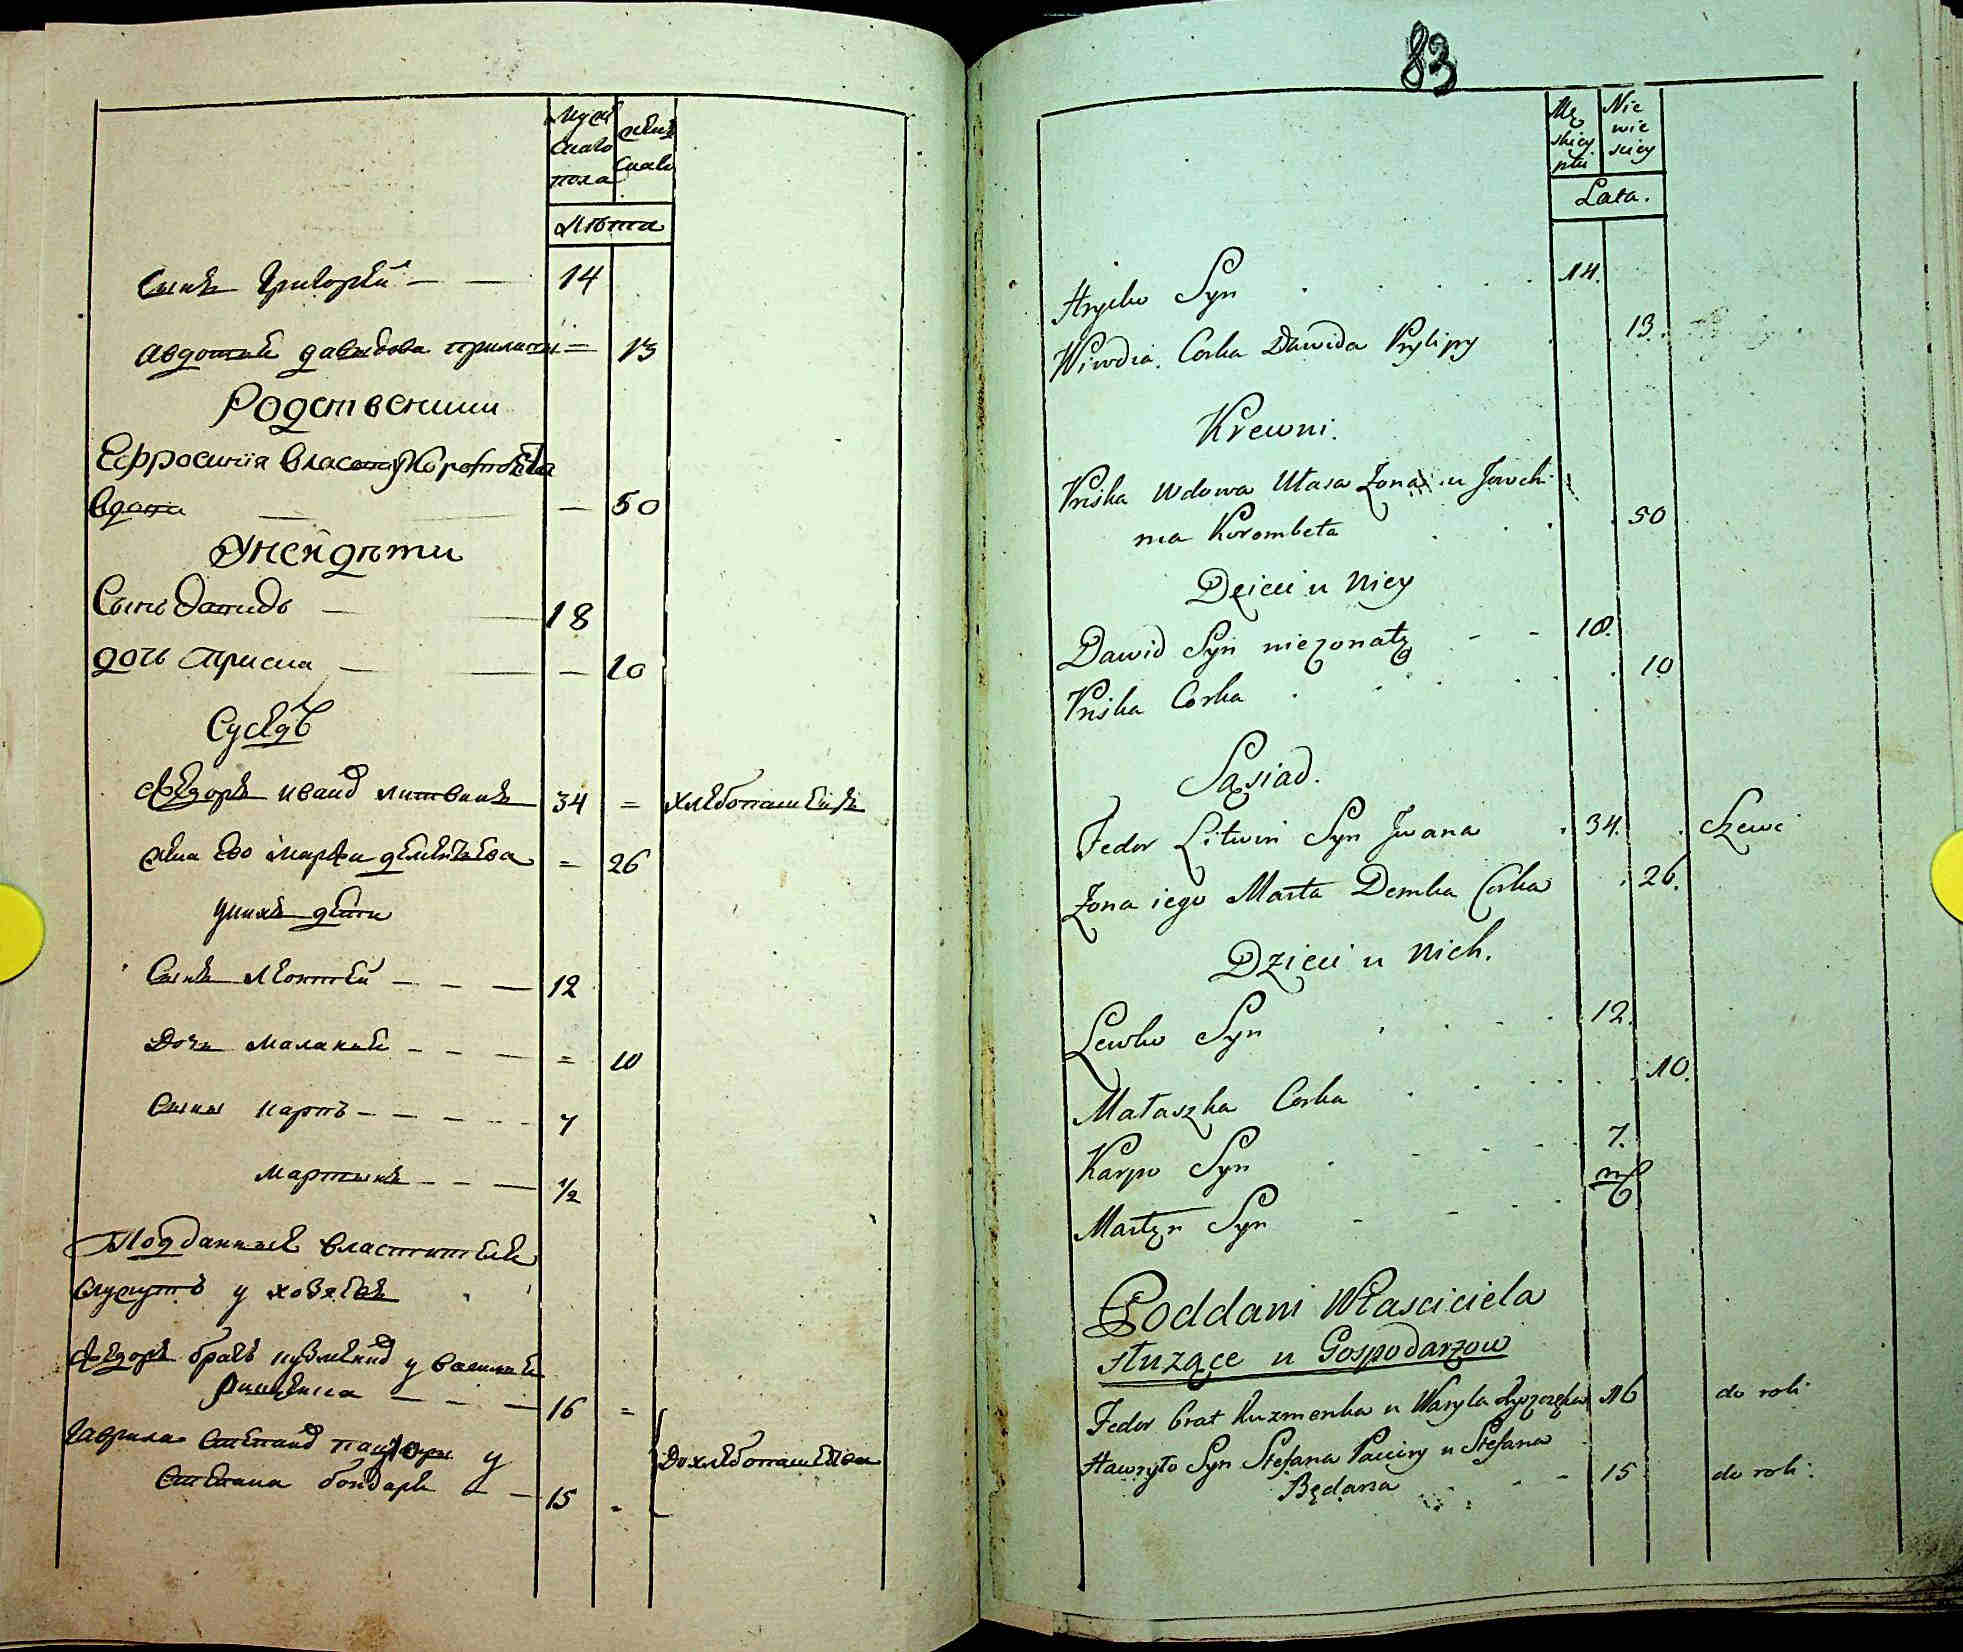 Мужскаго пола
женскаго
Лѣта
Сынъ Григорѣй 14
Авдотия давидова прилипы = 13
Родственики
Ефросиния власа
вдова — 50
Унсй дѣти
Сынъ давидъ 18
дочь Присиа — 10
Сусѣдъ
Федоръ иванд литвинъ 34 = хлѣбопашецъ
жена Ево марфа = 26
унихъ дети
Сынъ Леонтей 12
Дочь маланья = 10
Сыны карпъ 7
мартынъ 1/2
Подданныя властителя
служутъ у хозяевъ
Федоръ братъ кузменка у василия
16 =
Гаврила Степанд пацюры у
Степана бондаря 15 дохлебопашества
83
Męskiey płci
Niewiesciey
Lata.
Hrycko Syn 14.
Wiwdia. Corka Dawida Prylipy 13.
Krewni.
Priska Wdowa Ułasa Zona u Jowchi
ma Korombeta 50
Dzieci u Niey
Dawid Syn niezonaty 18.
Priska Corka 10
Sąsiad.
Fedor Litwin Syn Jwana 34. Szewc
Zona iego Marta Demka Corka 26.
Dzieci u Nich.
Lewko Syn 12.
Małaszka Corka 10.
Karpo Syn 7.
Martyn Syn
Poddani Własciciela
słuzące u Gospodarzow
Fedor brat Kuzmenka u Wasyla 16 do roli
Hawryło Syn Stefana Paciury u Stefana
Będarza 15 do roli.